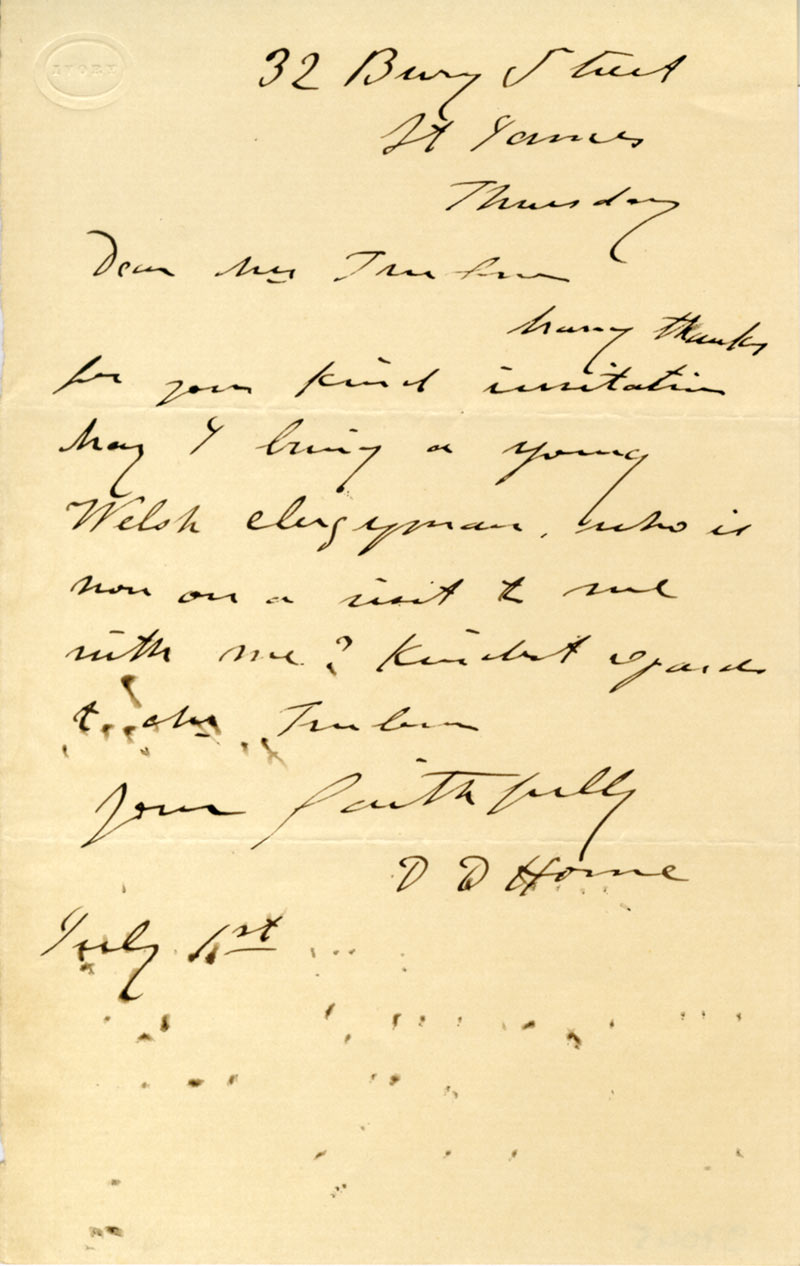 IVORY
32 Bury Street
St James
Thursday
Dear Mrs Trubner
Many thanks
for your kind invitation
May I bring a young
Welsh clergyman, who is
now on a visit to me
with me? Kindest regards
to Mr Trubner
Yours faithfully
D D Home
July 1st